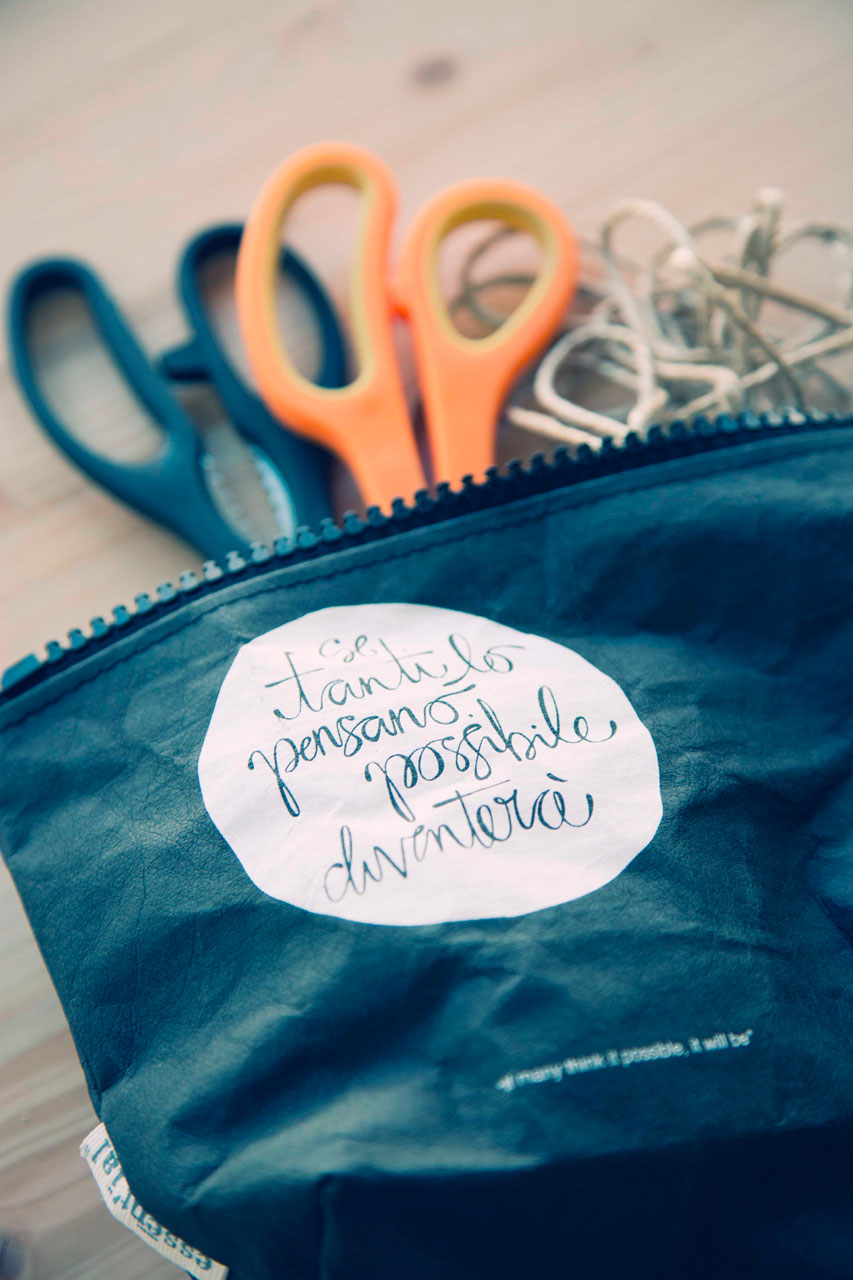 se
tanti lo
pensano
possibile
diventerà
"if many think it possible, it will be"
essent'ial